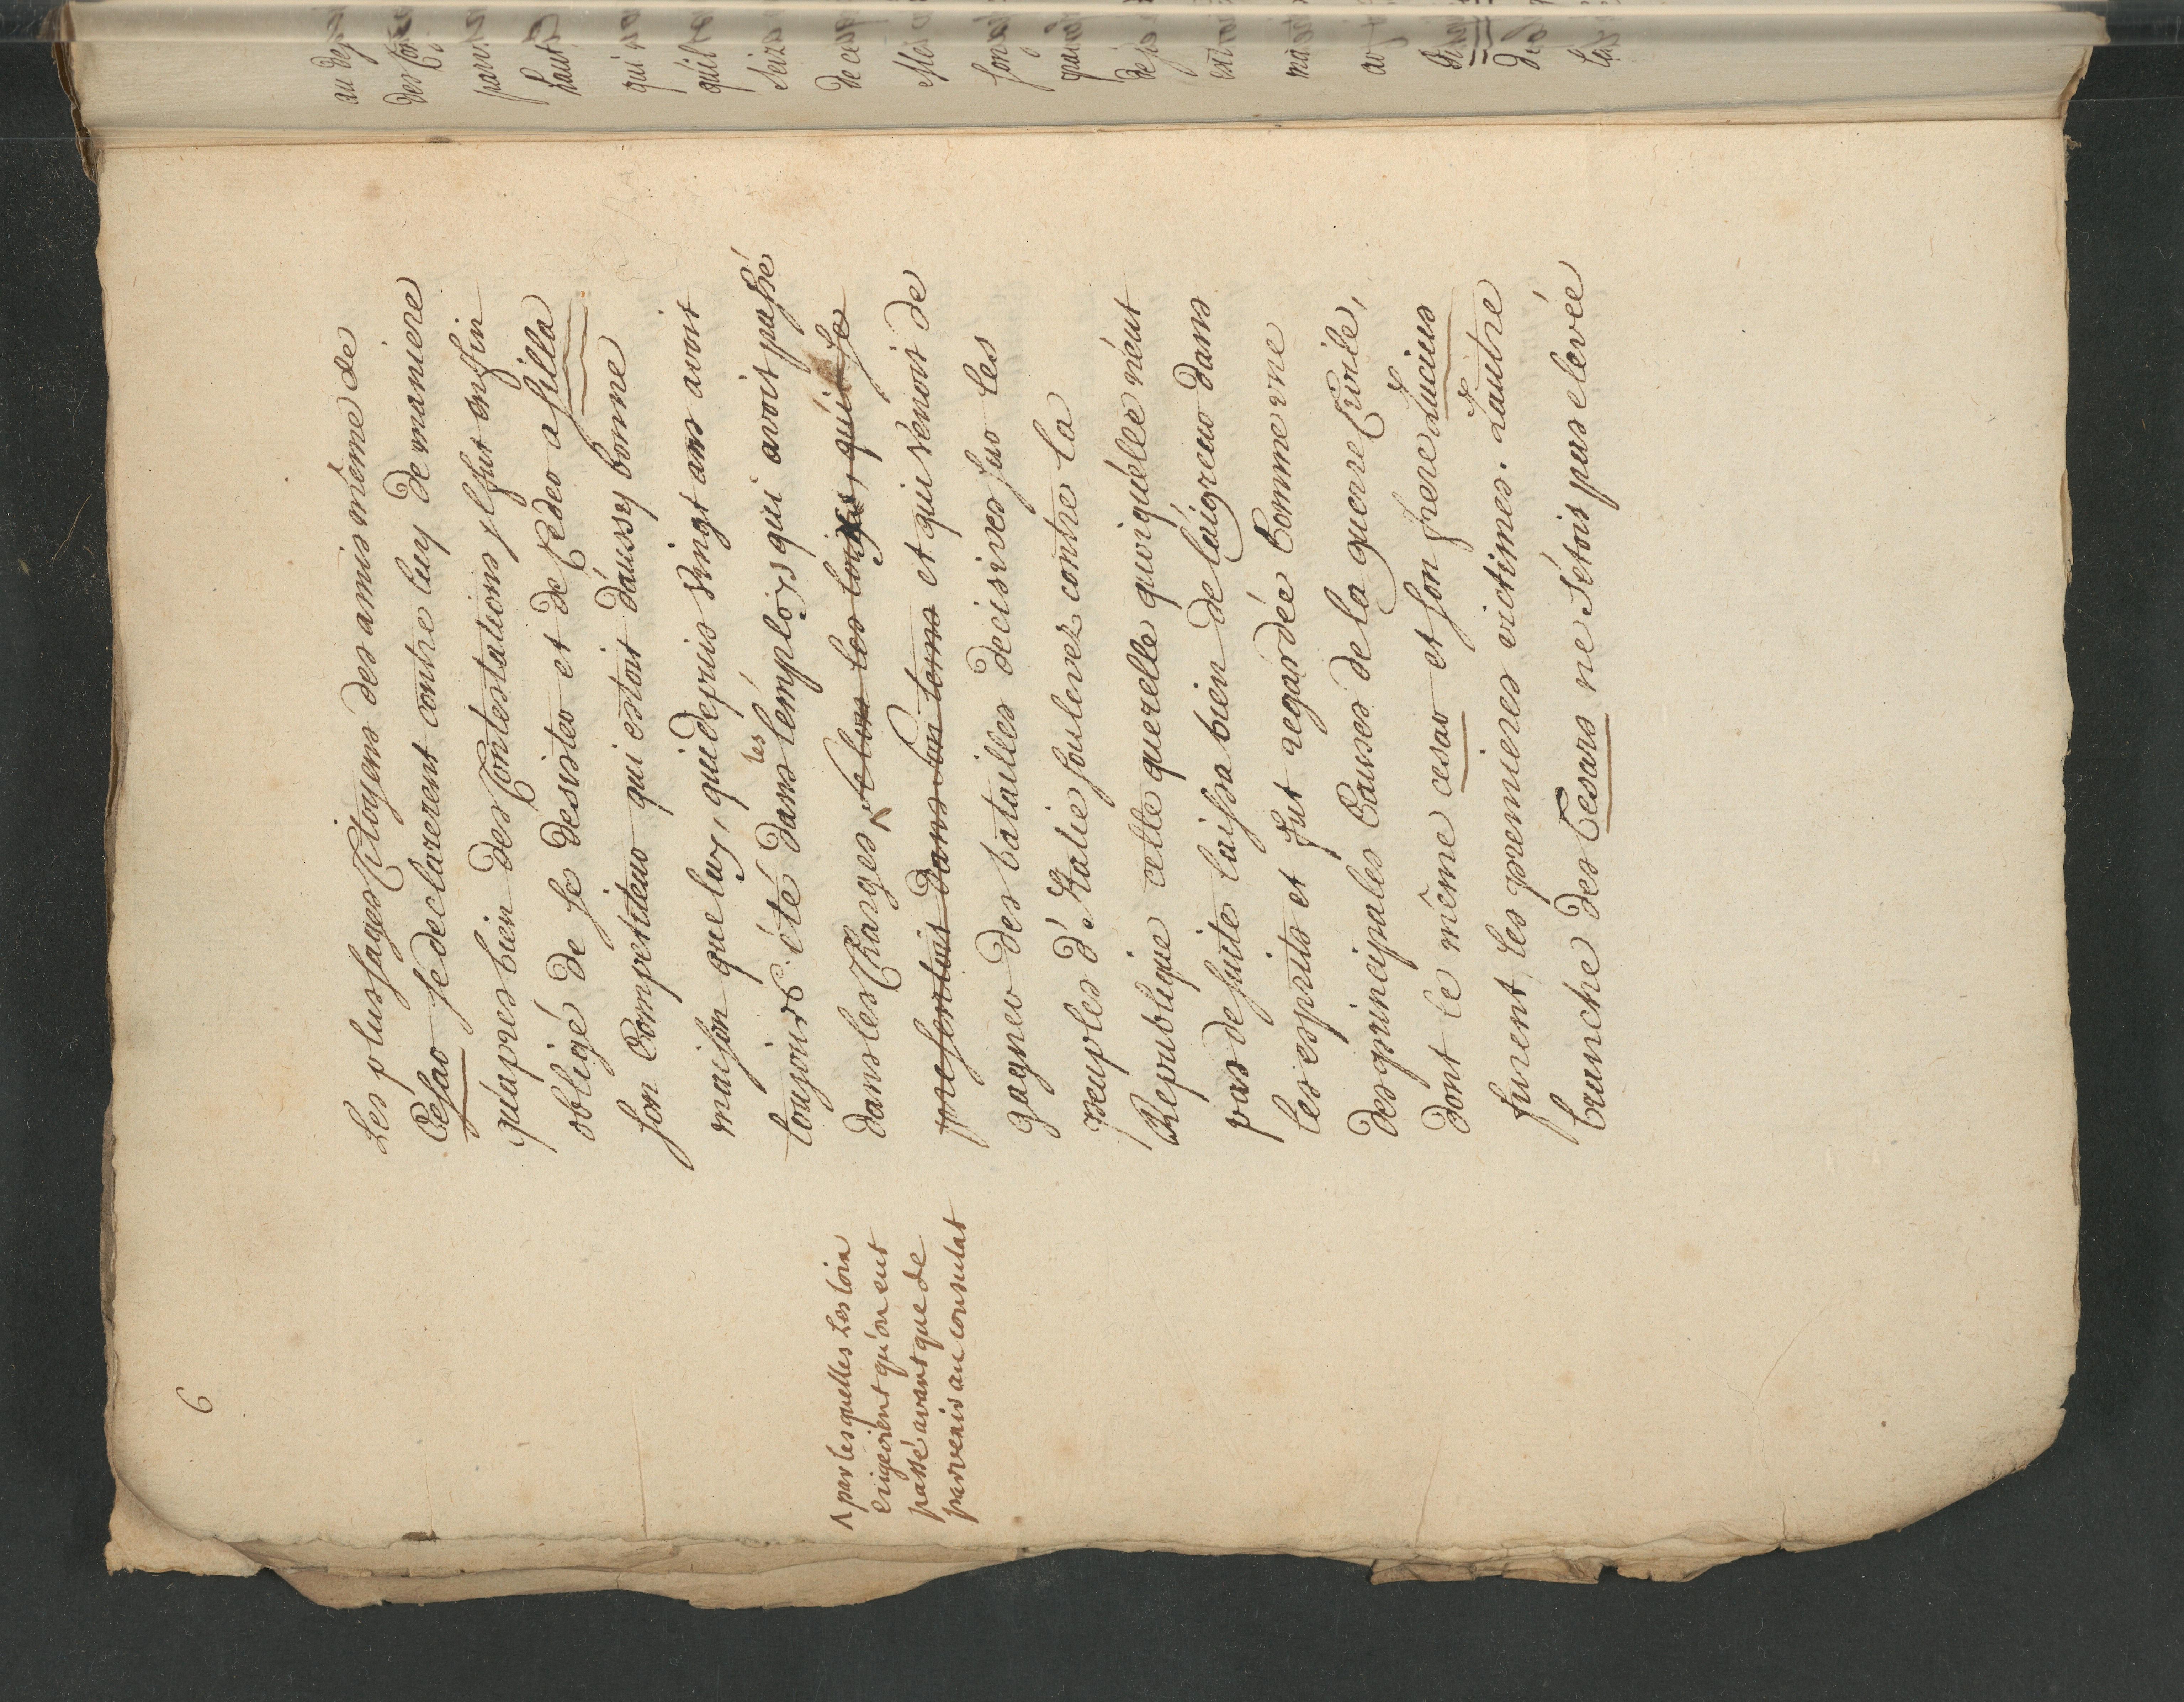 6
Les plus sages Citoyens des amis même de
Cesar se declarerent contre luy de maniere
qu'apres bien des Contestations yl fut enfin
obligé de se desister et de Ceder a silla
son Competiteur qui estoit d'aussy bonne
maison que luy, qui depuis vingt ans avoit
toujours été dans les émploys qui avoit passé
dans les Charges ^ selon les loix, qui se
presentoit dans son tems et qui venoit de
gagner des batailles decisives sur les
peuples d'Italie soulevez contre la
Republique cette querelle quoiqu'elle n'eut
pas de suite laissa bien de l'aigreur dans
les esprits et fut regardée Comme une
des principales Causes de la guerre Civile,
dont le même cesar et son frere Lucius
furent les premieres victimes. L'autre
branche des Cesars ne s'étoit pas elevée
^ par lesquelles les loix
exigeoient qu'on eut
passé avant que de
parvenir au consulat
au dep
des Con
parvi
haut
qui
qu'il
seiz
de ce
son